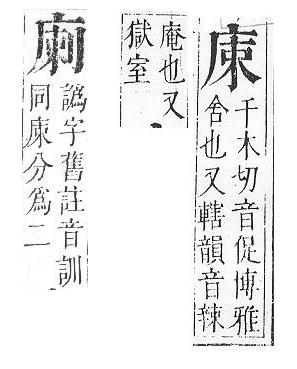 千木切音促博雅
舍也又轄韻音辣
庵也又
獄室
譌字舊註音訓
同分爲二